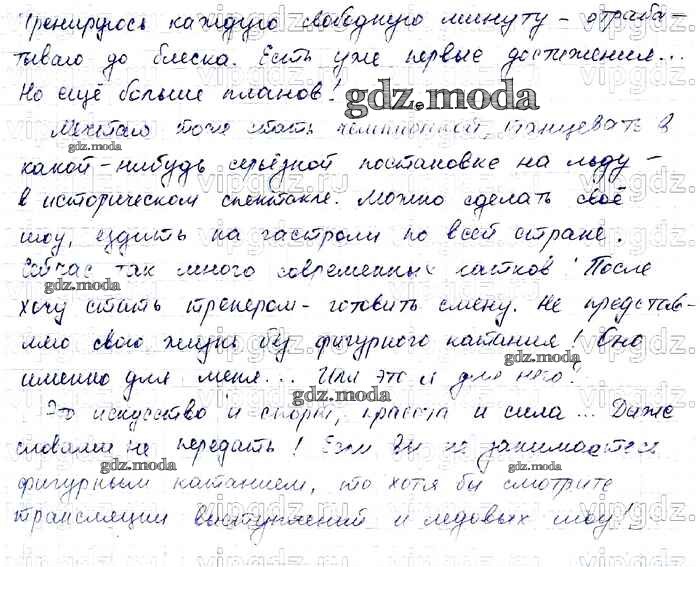 Тренируюсь каждую свободную минуту – отраба-
тываю до блеска. Есть уже первые достижения...
Но ещё больше планов!
gdz.moda
Мечтаю тоже стать чемпионкой, танцевать в
gdz.moda
какой-нибудь серьёзной постановке на льду –
в историческом спектакле. Можно сделать своё
шоу, ездить на гастроли по всей стране.
Сейчас так много современных катков! После
gdz.moda
хочу стать тренером – готовить смену. Не представ-
ляю свою жизнь без фигурного катания! Оно
gdz.moda
именно для меня... Или это я для него?
Это искусство и спорт, красота и сила... Даже
gdz.moda
словами не передать! Если Вы не занимаетесь
gdz.moda
фигурным катанием, то хотя бы смотрите
трансляции выступлений и ледовых шоу!